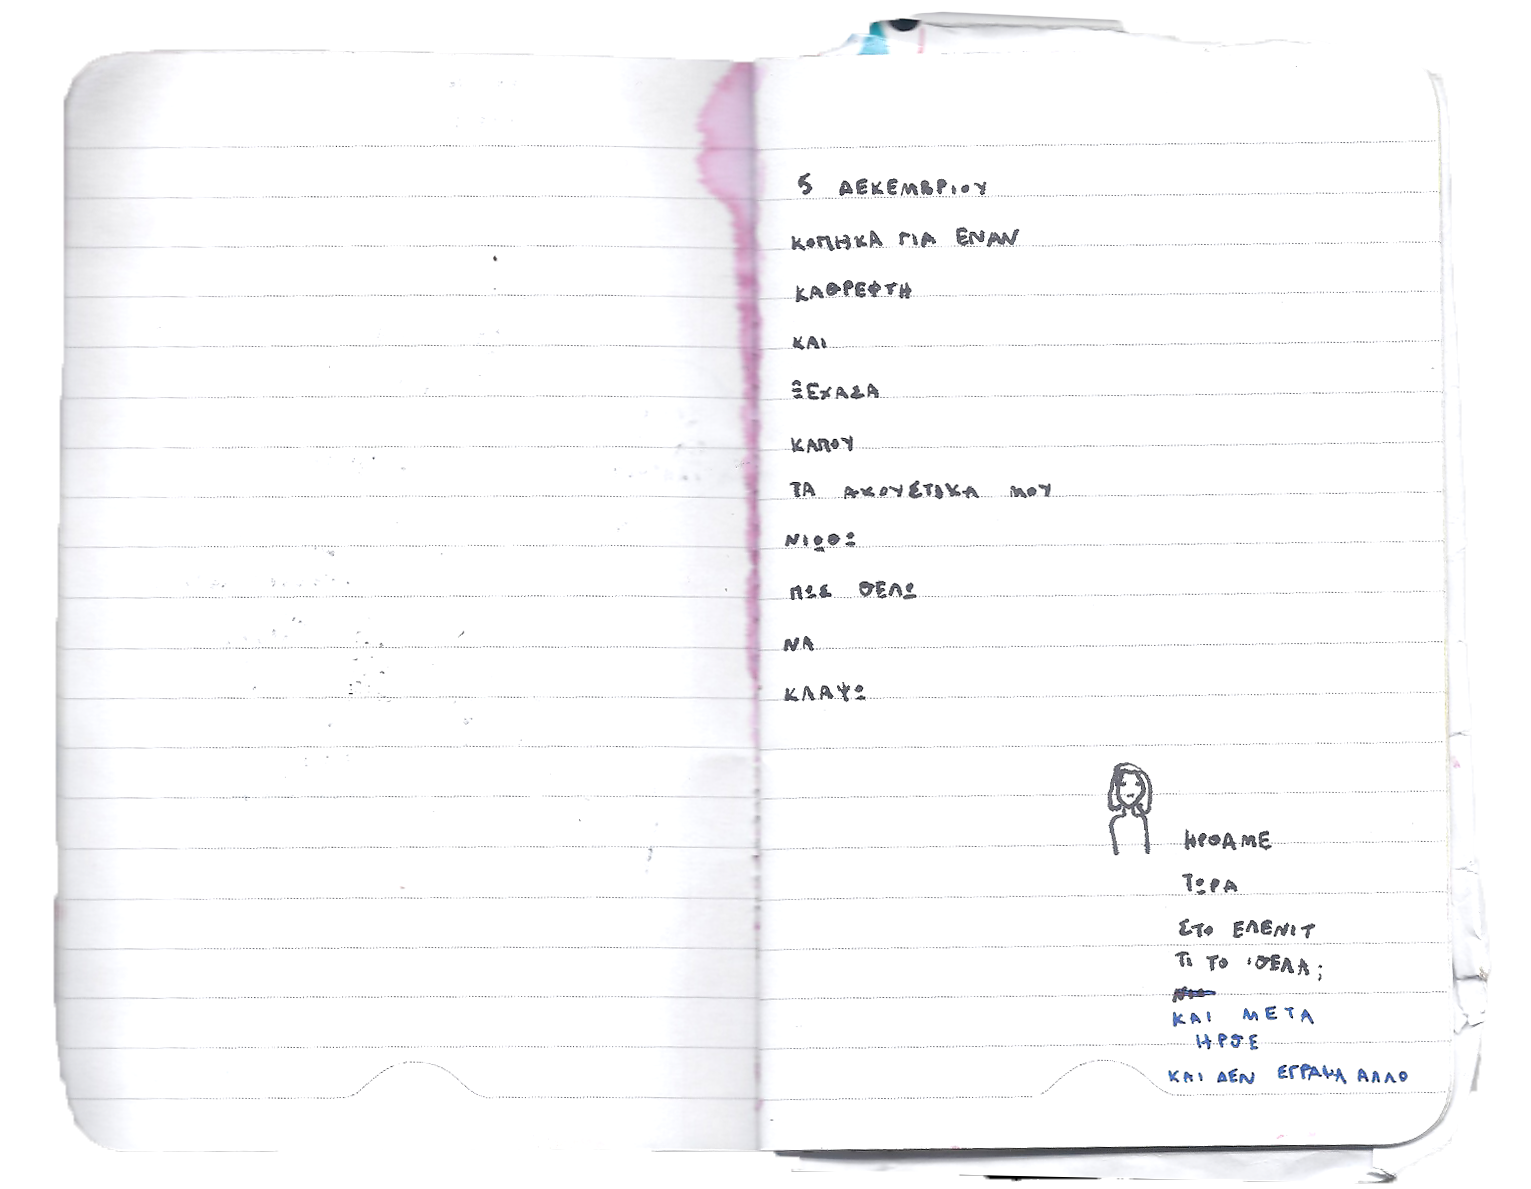 5 ΔΕΚΕΜΒΡΙΟΥ
ΚΟΠΗΚΑ ΓΙΑ ΕΝΑΝ
ΚΑΘΡΕΦΤΗ
ΚΑΙ
ΞΕΧΑΣΑ
ΚΑΠΟΥ
ΤΑ ΑΚΟΥΣΤΙΚΑ ΜΟΥ
ΝΙΩΘΩ
ΠΩΣ ΘΕΛΩ
ΝΑ
ΚΛΑΨΩ
ΗΡΘΑΜΕ
ΤΩΡΑ
ΣΤΟ ΕΛΕΝΙΤ
ΤΙ ΤΟ 'ΘΕΛΑ;
ΚΑΙ ΜΕΤΑ
ΗΡΘΕ
ΚΑΙ ΔΕΝ ΕΓΡΑΨΑ ΑΛΛΟ